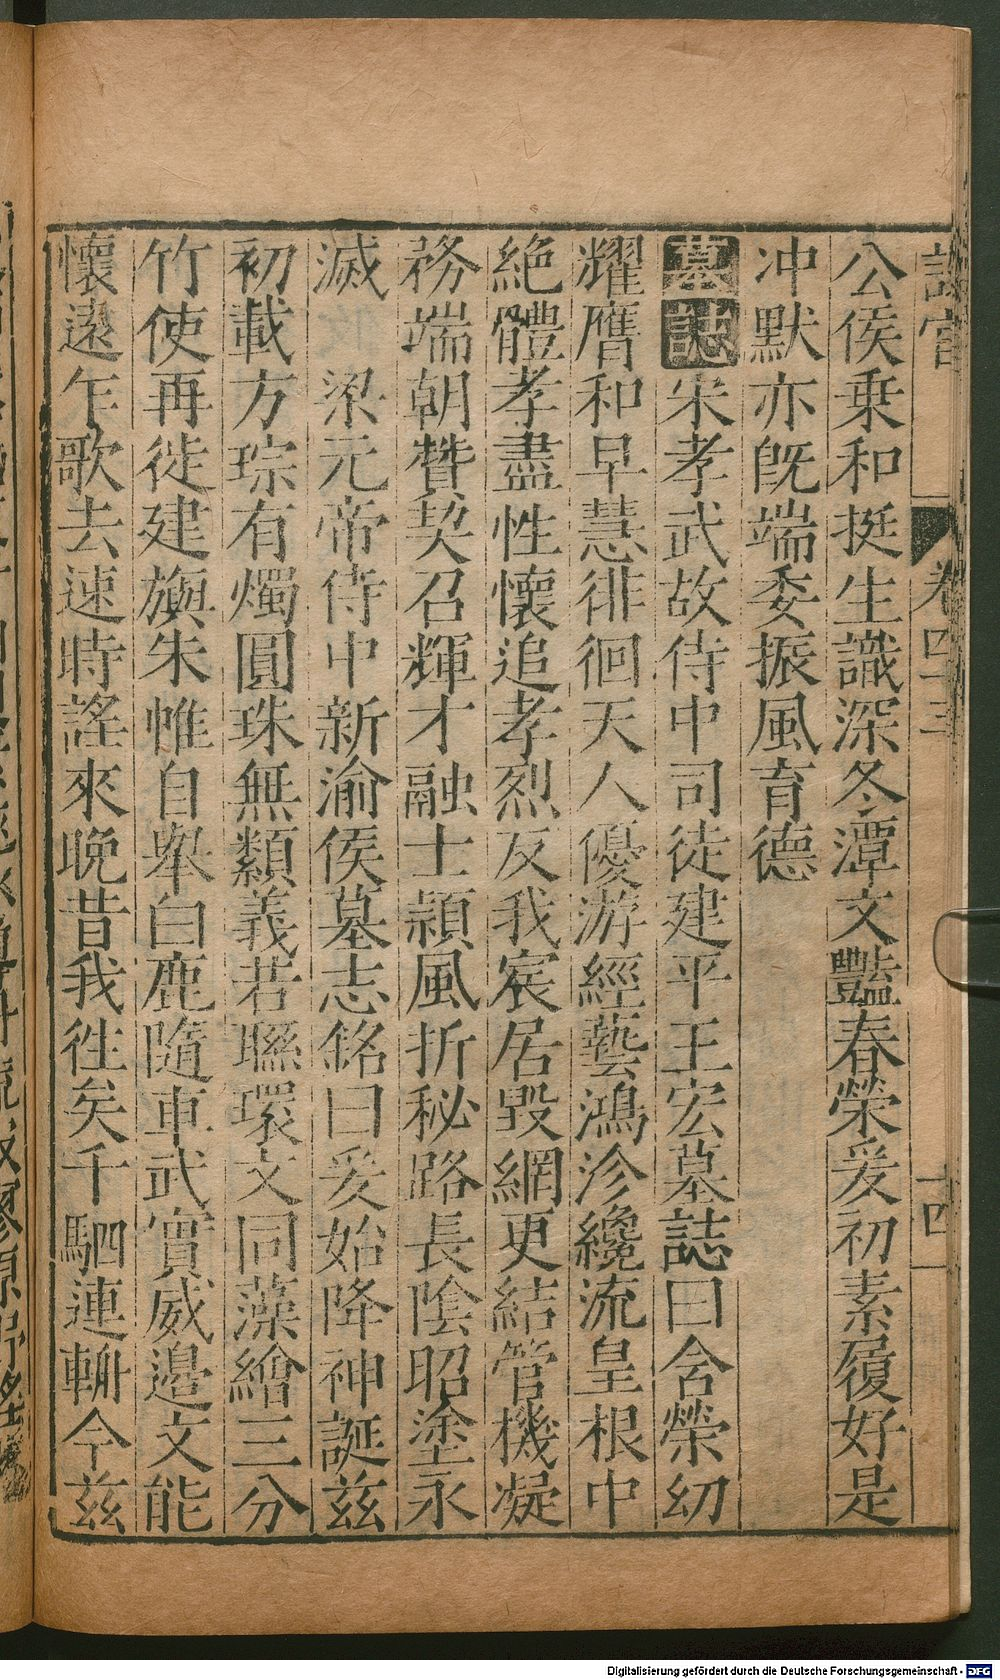 公侯乗和挺生識深冬潭文豔春榮爰初素履好是
冲默亦旣端委振風育德
墓誌宋孝武故侍中司徒建平王宏墓誌曰含榮幼
耀膺和早慧徘徊天人優游經藝鴻沴纔流皇根中
絶體孝盡性懷追孝烈反我宸居毀網更結管機凝
務端朝贊契召輝才融士穎風折秘路長陰昭塗永
滅　梁元帝侍中新渝侯墓志銘曰爰始降神誕兹
初載方琮有燭圓珠無纇義若聯環文同藻繪三分
竹使再徙建旟朱帷自舉白鹿隨車武實威邊文能
懷遠乍歌去速時謠來晩昔我徃矣千駟連輈今兹
卷四十三
十四
Digitalisierung gefördert durch die Deutsche Forschungsgemeinschaft - DFG